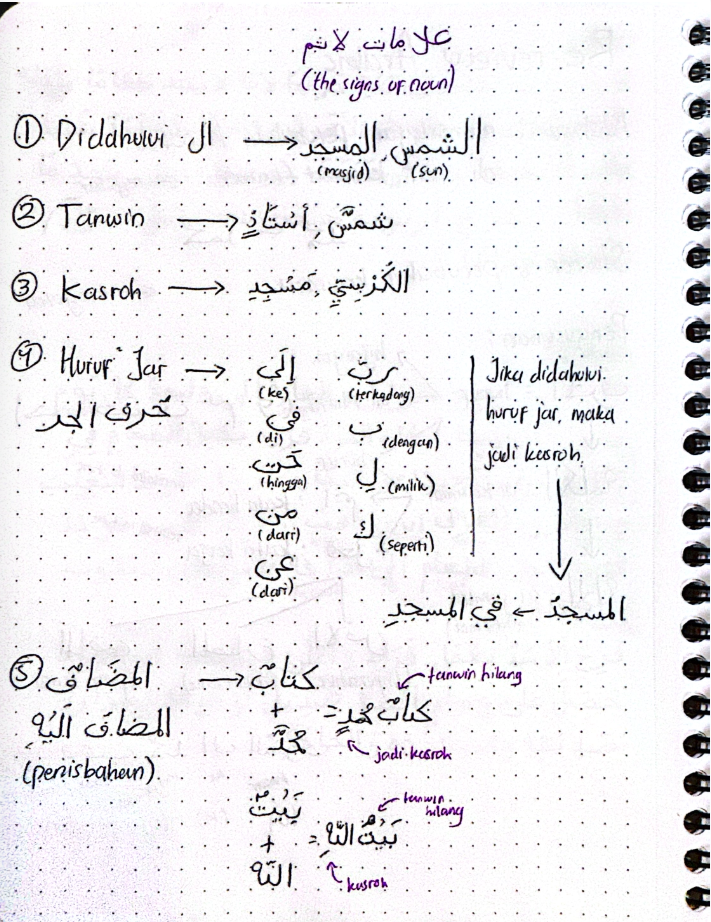 علامات لاسم
(the signs of noun)
① Didahului ال → الشمس, المسجد
(masjid) (sun)
② Tanwin → شمسٌ, أستاذٍ
③ Kasroh → الكُرْسِيِّ, مَسْجِدِ
④ Huruf Jar → إلَى ربّ
حرف الجر (ke) (terkadang)
في ب
(di) (dengan)
حتى لِ
(hingga) (milik)
من ك
(dari) (seperti)
عن
(dari)
Jika didahului
huruf jar, maka
jadi kasroh
المسجدُ ← في المسجدِ
⑤ المضَافُ → كتابٌ
المضاف اليْهِ +
(penisbahan) محمدٌ
= كتابُ محمدٍ
tanwin hilang
jadi kasroh
بَيْتٌ
+
اللّٰه
= بَيْتُ اللّٰهِ
tanwin
hilang
kasroh